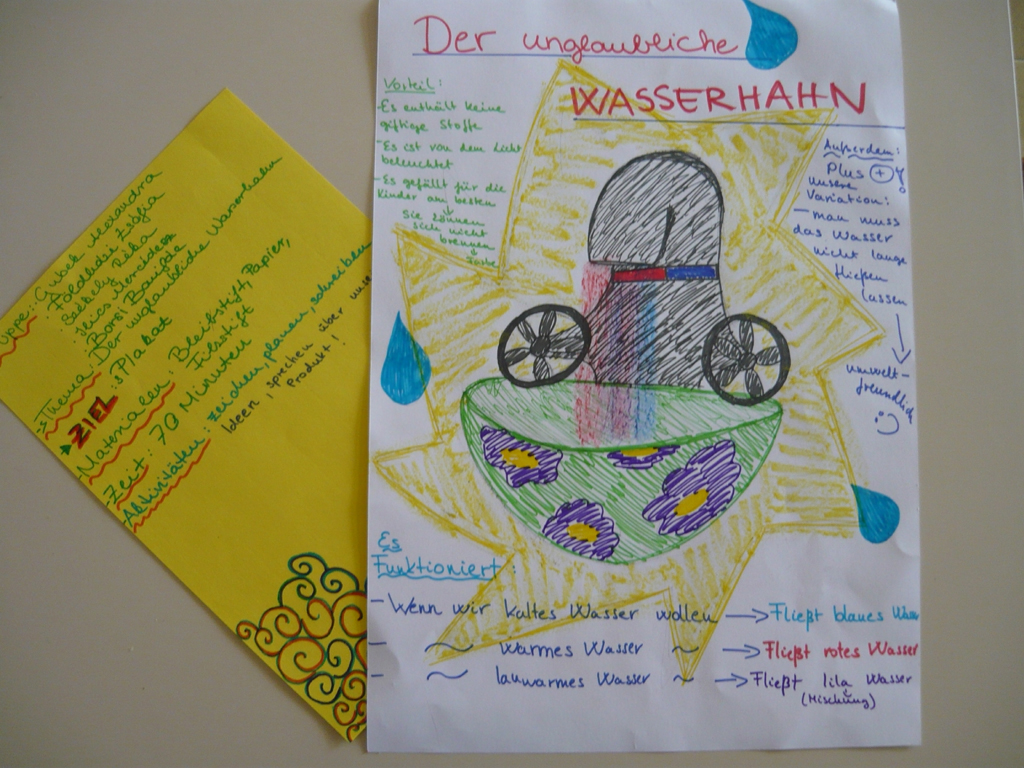 Der unglaubliche
WASSERHAHN
Vorteil:
-Es enthält keine
giftige Stoffe
-Es ist von dem Licht
beleuchtet
-Es gefällt für die
Kinder am besten
Sie können
sich nicht
brennen
Farbe
Außerdem:
Plus + !
unsere
Variation:
- man muss
das Wasser
nicht lange
fließen
lassen
umwelt-
freundlich
Es
Funktioniert:
- Wenn wir kaltes Wasser wollen → Fließt blaues Wasser
- ~ warmes Wasser ~ → Fließt rotes Wasser
- ~ lauwarmes Wasser ~ → Fließt lila Wasser
(Mischung)
Alexandra
Zsófia
Székely Réka
Borsi
Thema: Der unglaubliche Wasserhahn
ZIEL: Plakat
-Materialen: Bleistift, Papier,
Filzstift
-Zeit: 70 Minuten
-Aktivitäten: zeichen, planen, schreiben
Ideen, sprechen über
Produkt!